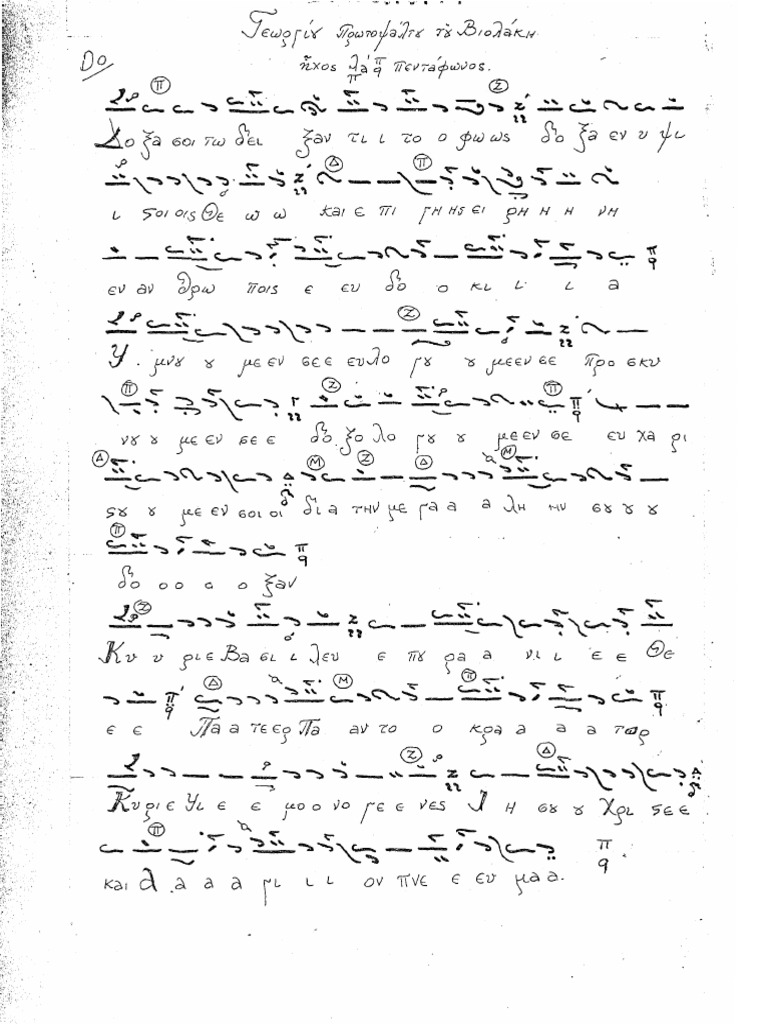 Γεωργίου Πρωτοψάλτου τοῦ Βιολάκη
DO
ἦχος λα π π πεντάφωνος.
Δο ξα σοι τω δει ξαν τι ι το ο φω ως δο ξα εν υ ψι
ι ςοι οις Θε ω ω και ε πι γη ης ει ρη η η νη
εν αν θρω ποις ε ευ δο ο κι ι ι α
Υ μνου ου με εν σε ε ευ λο γου ου με εν σε προ σκυ
νου ου με εν σε ε δο ξο λο γου ου με εν σε ευ χα ρι
ςου ου με εν σοι οι δι α την με γα α α λη ην σου ου ου
δο ο ο ο ο ξαν
Κυ υ ρι ε Βα σι ι λευ ε που ρα α νι ι ε ε Θε
ε ε Πα α τε ερ Πα αν το ο κρα α α α τωρ
Κυ ρι ε Υι ε ε μο ο νο γε ε νες Ι η σου ου Χρι ςε ε
και Α α α α γι ι ι ον πνε ε ευ μα α.